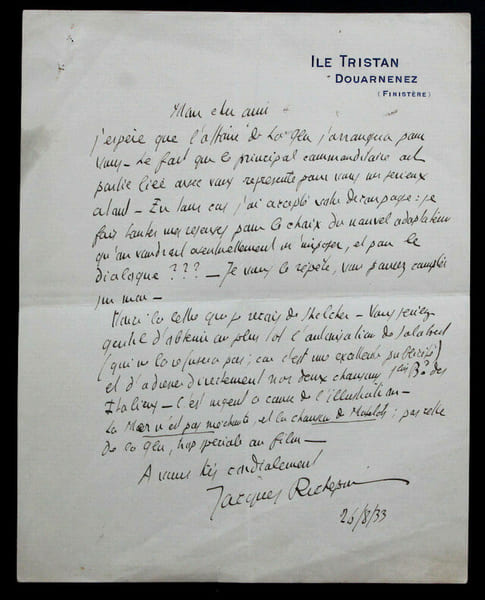 ILE TRISTAN
DOUARNENEZ
(FINISTÈRE)
Mon cher ami
J'espère que l'affaire de La Glu s'arrangera pour
vous - Le fait que le principal commanditaire ait
partie liée avec vous représente pour vous un sérieux
atout - En tous cas j'ai accepté votre découpage : je
fais toutes mes réserves pour le choix du nouvel adaptateur
qu'on voudrait éventuellement m'imposer, et pour le
dialogue ??? - Je vous le répète, vous pouvez compter
sur moi -
la lettre que je reçois de - Vous seriez
gentil d'obtenir au plus tôt l'autorisation de
(qui ne la refusera pas ; car c'est une excellente publicité)
et d'adresser directement nos deux chansons Bd des
Italiens - C'est urgent à cause de l'illustration -
La Mer n'est pas méchante, et la chanson de Matelots ; pas celle
de La Glu, trop spéciale au film -
A vous très cordialement
Jacques Richepin
26/8/33